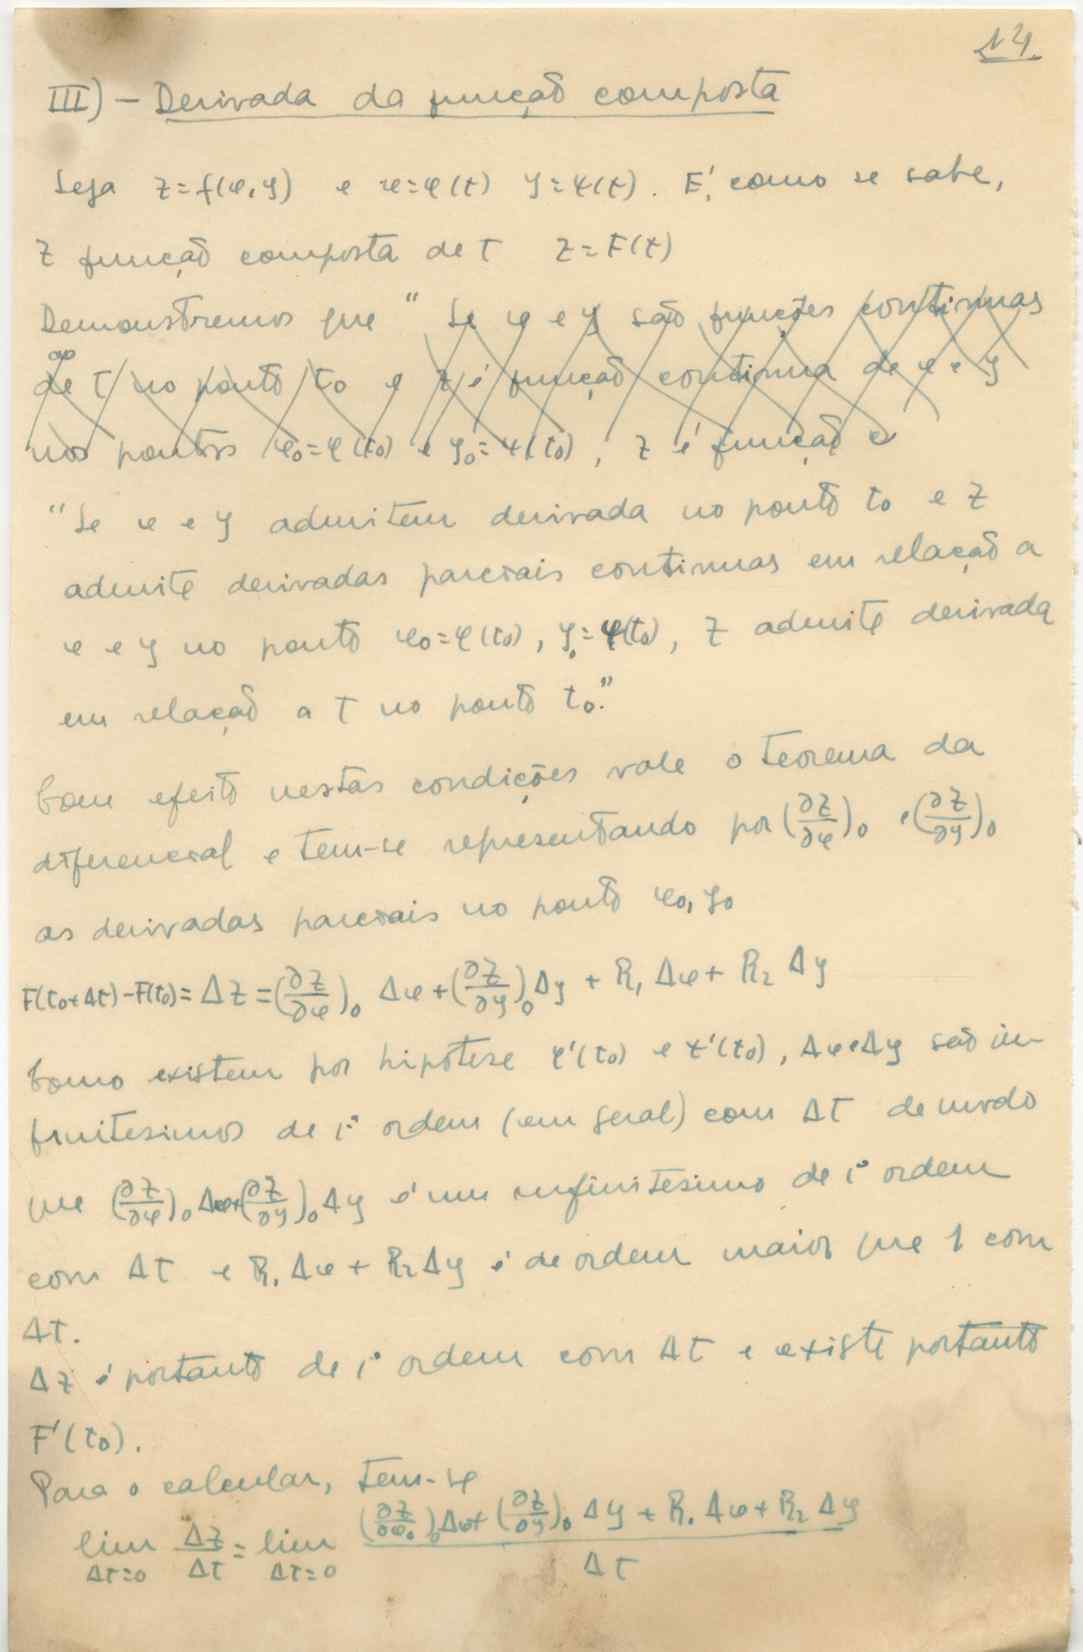 14
III) - Derivada da função composta
Seja z=f(x,y) e x=φ(t) y=ψ(t). É, como se sabe,
z função composta de t z=F(t)
Demonstremos que "Se x e y são funções continuas
de t no ponto t₀ e z é função continua de x e y
nos pontos x₀=φ(t₀) e y₀=ψ(t₀), z é função c
"Se x e y admitem derivada no ponto t₀ e z
admite derivadas parciais continuas em relação a
x e y no ponto x₀=φ(t₀), y₀=ψ(t₀), z admite derivada
em relação a t no ponto t₀."
Com efeito nestas condições vale o teorema da
diferencial e tem-se representando por (∂z/∂x)₀ e (∂z/∂y)₀
as derivadas parciais no ponto x₀, y₀
F(t₀+Δt)-F(t₀)=Δz=(∂z/∂x)₀ Δx+(∂z/∂y)₀Δy + R₁ Δx+ R₂ Δy
Como existem por hipotese φ'(t₀) e ψ'(t₀), Δx e Δy são in-
finitesimos de 1ª ordem (em geral) com Δt de modo
que (∂z/∂x)₀Δx+(∂z/∂y)₀Δy é um infinitesimo de 1ª ordem
com Δt e R₁Δx + R₂Δy é de ordem maior que 1 com
Δt.
Δz é portanto de 1ª ordem com Δt e existe portanto
F'(t₀).
Para o calcular, tem-se
lim Δt=0 Δz/Δt = lim Δt=0 ((∂z/∂x₀)₀Δx+(∂z/∂y)₀ Δy + R₁ Δx + R₂ Δy)/Δt